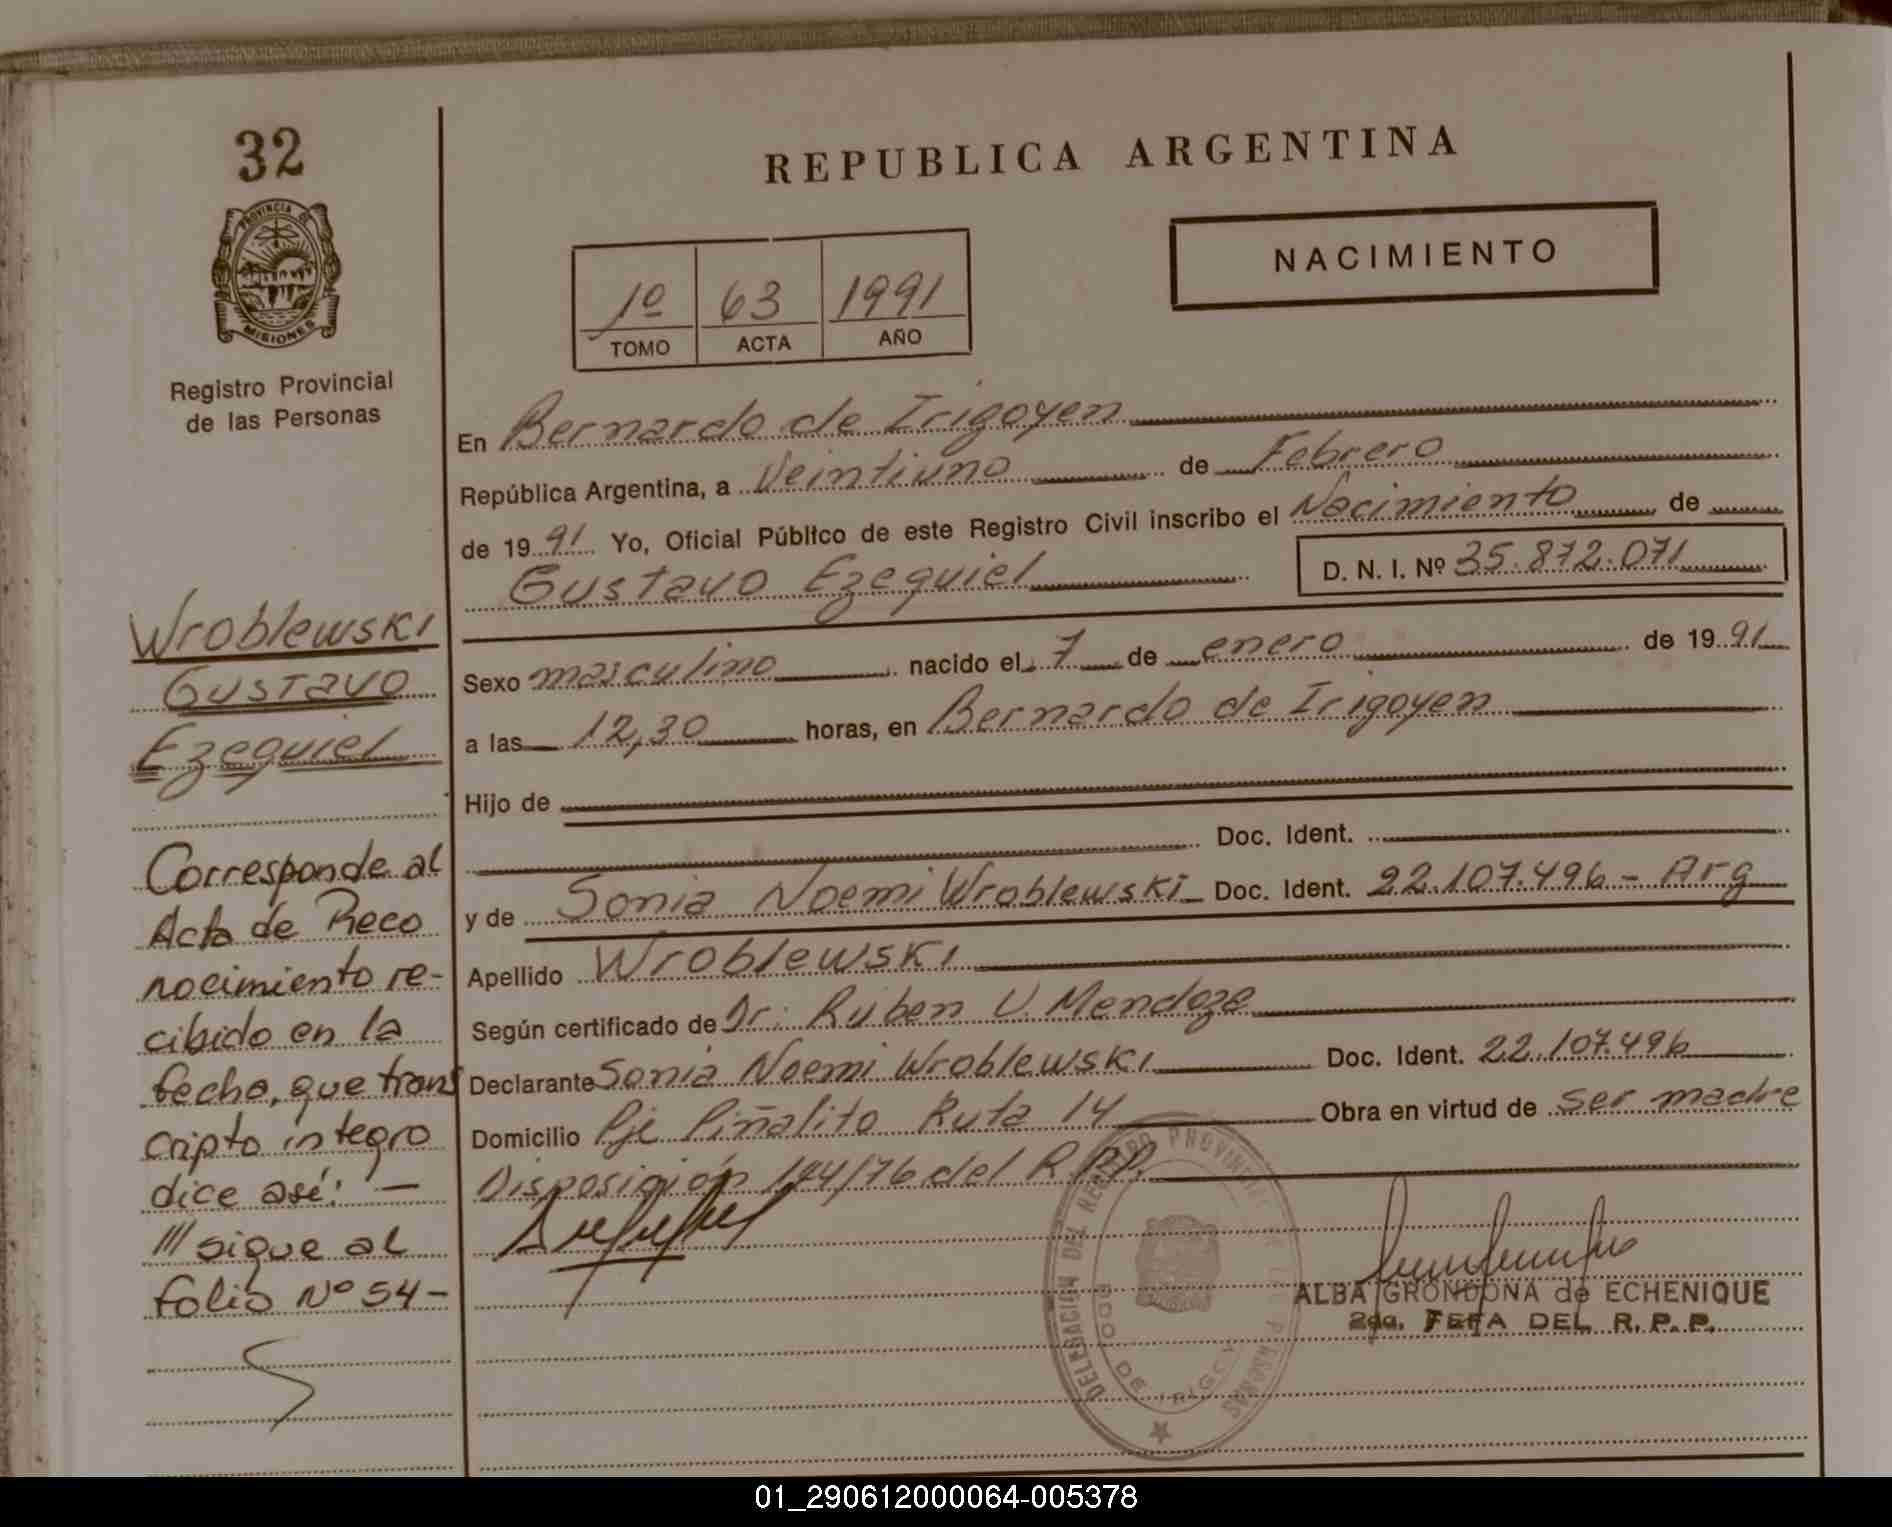 32
PROVINCIA DE
MISIONES
Registro Provincial
de las Personas
Wroblewski
Gustavo
Ezequiel
Corresponde al
Acta de Reco
nocimiento re-
cibido en la
fecha, que trans
cripto íntegro
dice así: —
/// sigue al
folio Nº 54 -
REPUBLICA ARGENTINA
NACIMIENTO
1º 63 1991
TOMO ACTA AÑO
En Bernardo de Irigoyen
República Argentina, a Veintiuno de Febrero
de 19 91 Yo, Oficial Público de este Registro Civil inscribo el Nacimiento de
Gustavo Ezequiel D. N. I. Nº 35.872.071
Sexo masculino nacido el 7 de enero de 19 91
a las 12,30 horas, en Bernardo de Irigoyen
Hijo de
Doc. Ident.
y de Sonia Noemi Wroblewski Doc. Ident. 22.107.496 - Arg
Apellido Wroblewski
Según certificado de Dr. Ruben V. Mendoza
Declarante Sonia Noemi Wroblewski Doc. Ident. 22.107.496
Domicilio Pje Piñalito Ruta 14 Obra en virtud de ser madre
Disposición 144/76 del R.P.P.
ALBA GRONDONA de ECHENIQUE
2da. JEFA DEL R. P. P.
DELEGACION DEL REGISTRO PROVINCIAL DE LAS PERSONAS
BDO DE IRIGOY
01_290612000064-005378